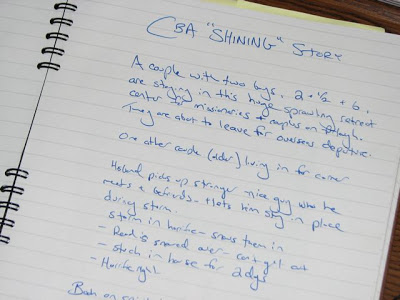 CBA "SHINING" STORY
A couple with two boys. 2 + 1/2 + 6.
are staying in this huge sprawling retreat
center for missionaries + couples on furlough.
They are about to leave for overseas
One other couple (older) living in far corner
Husband picks up stranger - nice guy who he
meets + befriends - + lets him stay in place
during storm.
storm in - snows them in
- Road is snowed over - can't get out
- stuck in house for 2 days
-